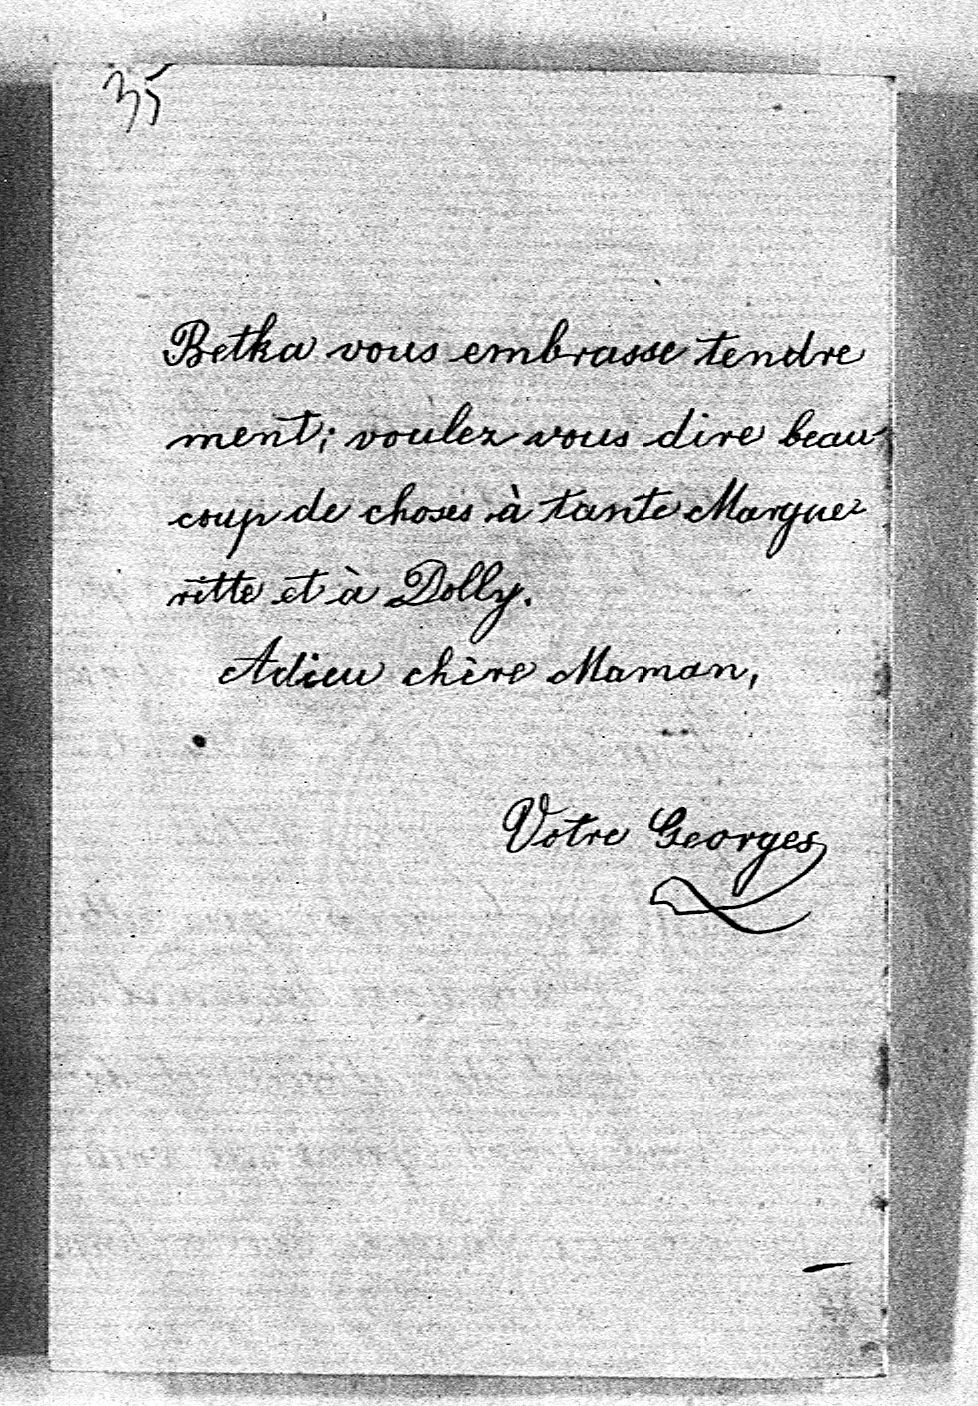 35
Betka vous embrasse tendre
ment; voulez vous dire beau-
coup de choses à tante Margue-
ritte et à Dolly.
Adieu chère Maman,
Votre Georges